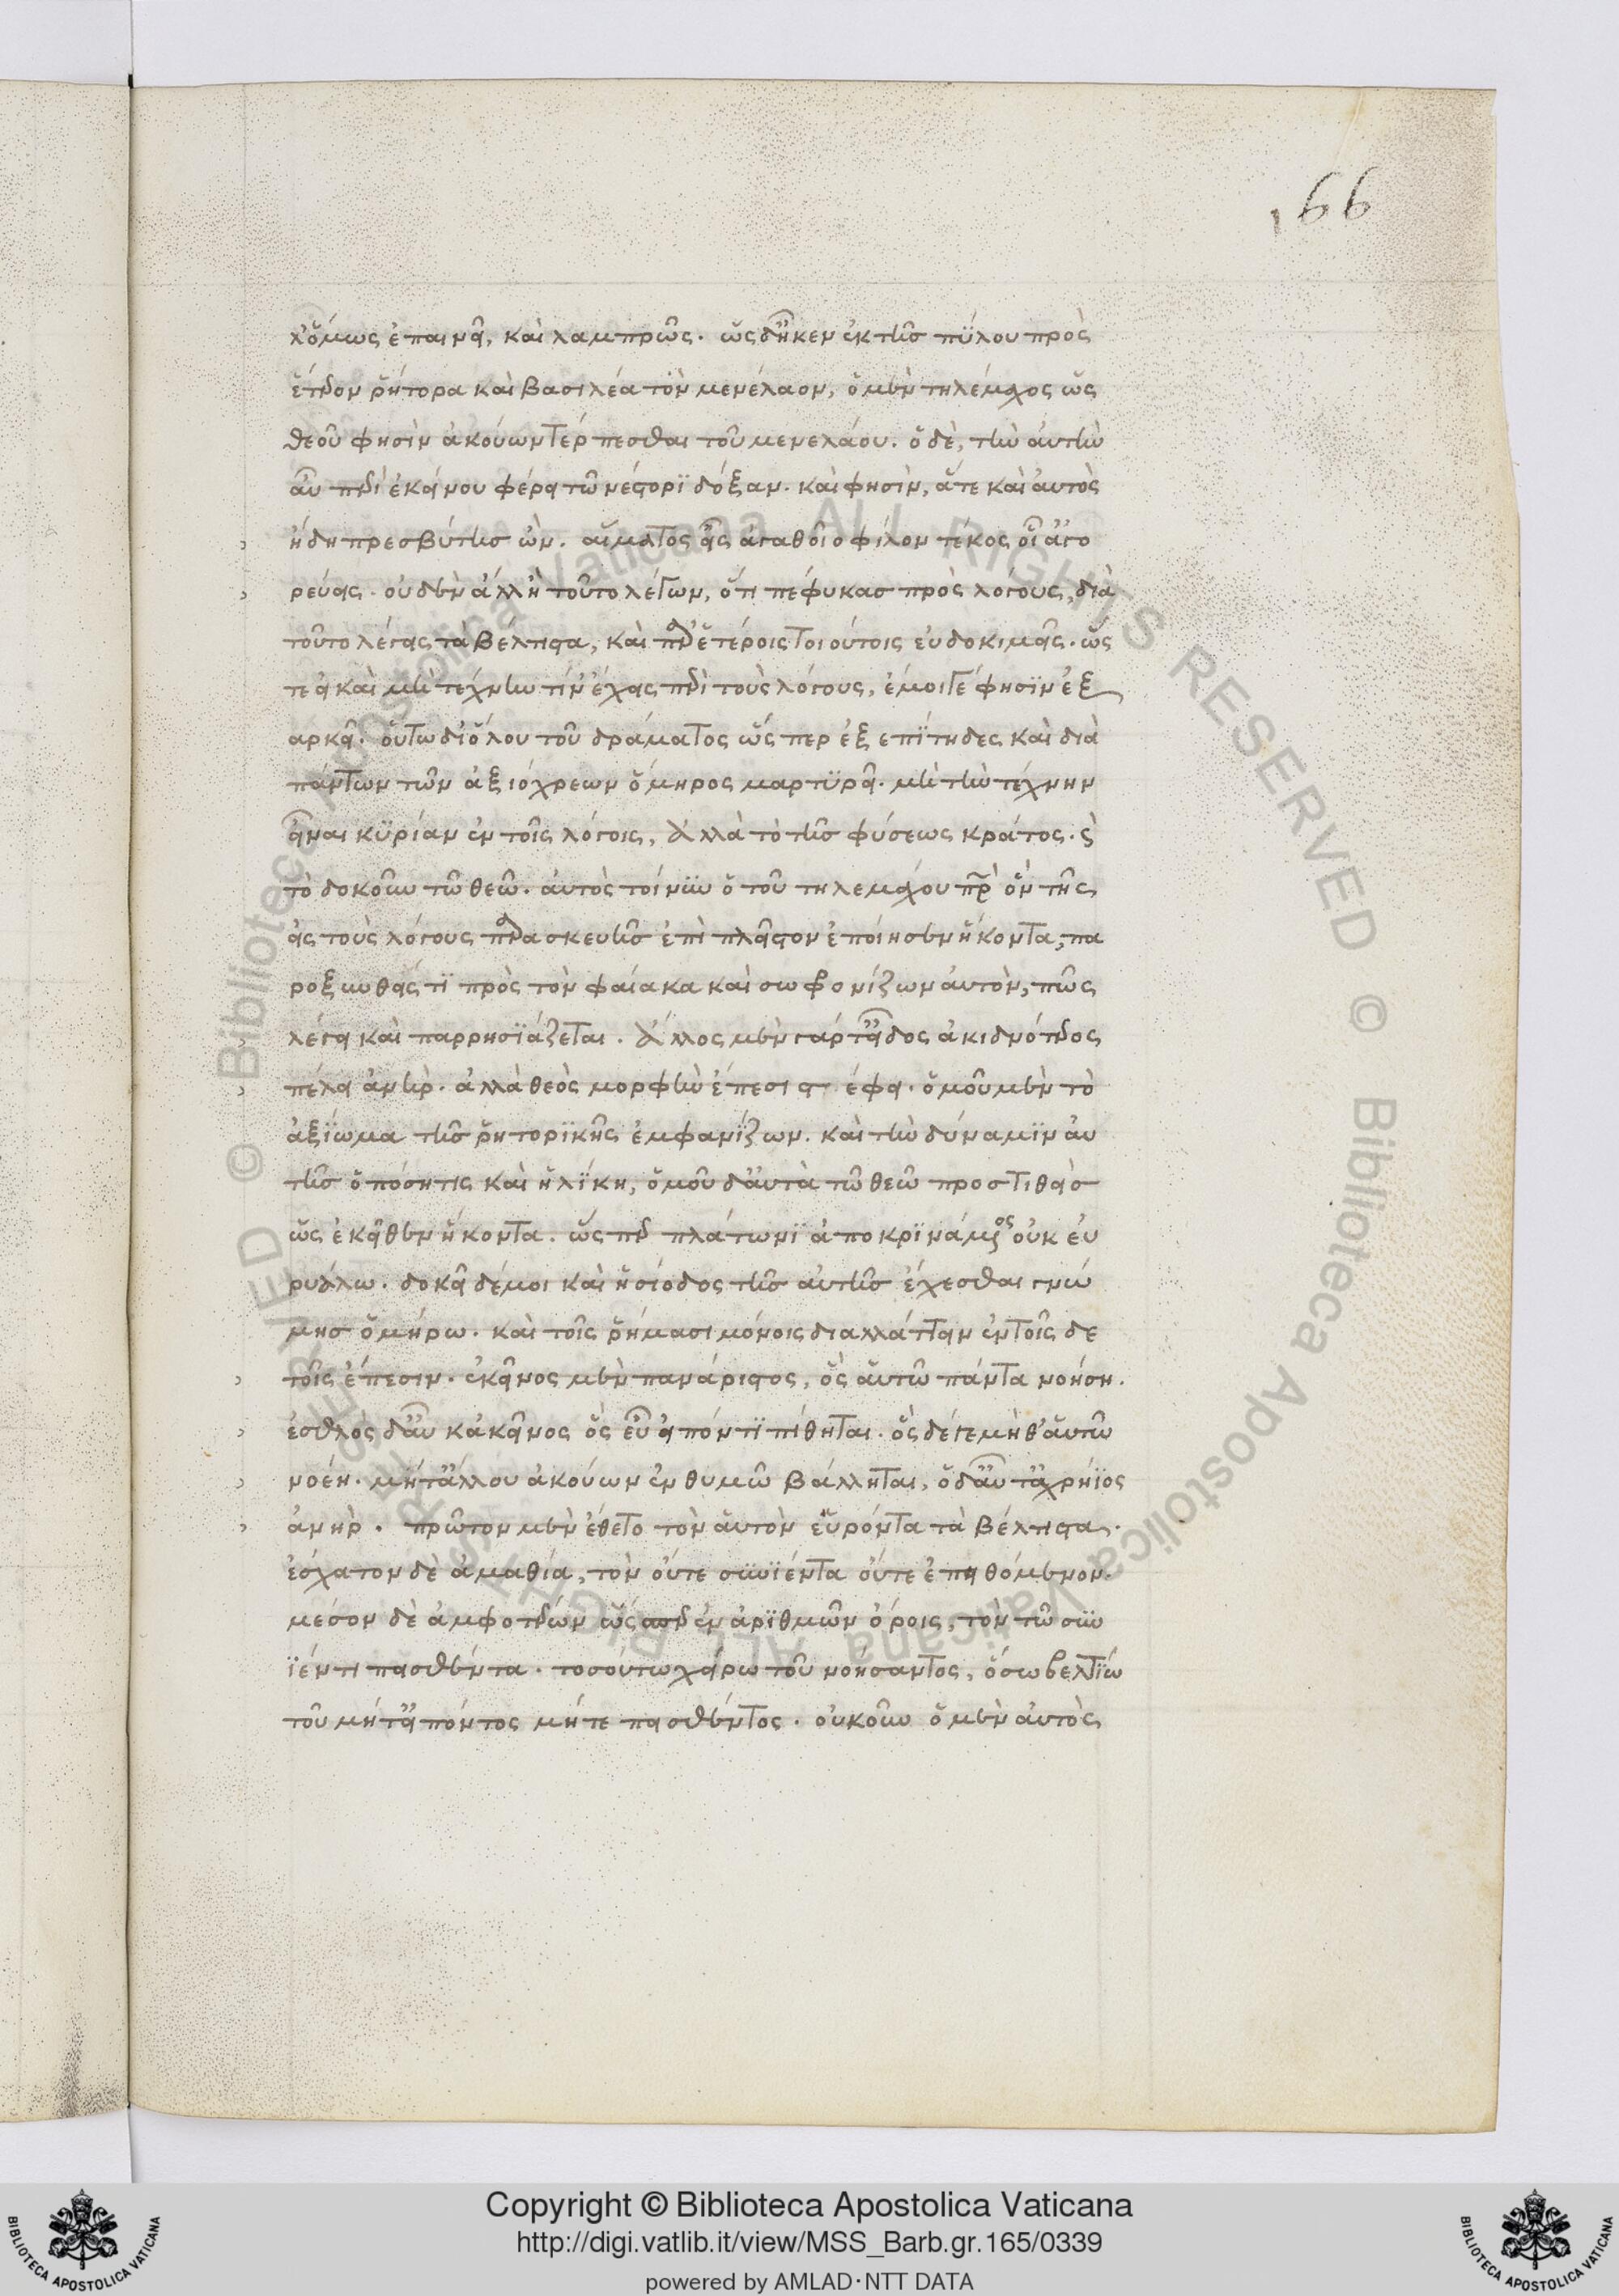 166
λ' ὅμως ἐπαινεῖ, καὶ λαμπρῶς. ὡς δ' ἧκεν ἐκ τῆς πύλου πρὸς
ἕτερον ῥήτορα καὶ βασιλέα τὸν μενέλαον, ὁ μὲν τηλέμαχος ὡς
θεοῦ φησὶν ἀκούων τέρπεσθαι τοῦ μενελάου. ὁ δὲ, τὴν αὐτὴν
αὖ περὶ ἐκείνου φέρει τῷ νέστορι δόξαν. καὶ φησὶν, ἅτε καὶ αὐτὸς
ἤδη πρεσβύτης ὤν. αἵματος εἶς ἀγαθοῖο φίλον τέκος οἷ' ἀγο
ρεύεις. οὐδὲν ἀλλ' ἢ τοῦτο λέγων, ὅτι πέφυκας πρὸς λόγους, διὰ
τοῦτο λέγεις τὰ βέλτιστα, καὶ παρ' ἑτέροις τοιούτοις εὐδοκιμεῖς. ὥς
τε εἰ καὶ μὴ τέχνην τίν' ἔχεις περὶ τοὺς λόγους, ἔμοιγέ φησὶν ἐξ
αρκεῖ. οὕτω δι' ὅλου τοῦ δράματος ὥσπερ ἐξεπίτηδες καὶ διὰ
πάντων τῶν ἀξιόχρεων ὅμηρος μαρτυρεῖ. μὴ τὴν τέχνην
εἶναι κυρίαν ἐν τοῖς λόγοις, ἀλλὰ τὸ τῆς φύσεως κράτος. καὶ
τὸ δοκοῦν τῷ θεῷ. αὐτὸς τοίνυν ὁ τοῦ τηλεμάχου πατὴρ ὃν τῆς
εἰς τοὺς λόγους παρασκευῆς ἐπὶ πλεῖστον ἐποίησεν ἥκοντα, πα
ροξυνθείς τι πρὸς τὸν φαίακα καὶ σωφρονίζων αὐτὸν, πῶς
λέγει καὶ παρρησιάζεται. ἄλλος μὲν γάρ τ' εἶδος ἀκιδνότερος
πέλει ἀνήρ. ἀλλὰ θεὸς μορφὴν ἔπεσι στέφει. ὁμοῦ μὲν τὸ
ἀξίωμα τῆς ῥητορικῆς ἐμφανίζων. καὶ τὴν δύναμιν αὐ
τῆς ὁπόση τις καὶ ἡλίκη, ὁμοῦ δ' αὐτὰ τῷ θεῷ προστιθεὶς
ὡς ἐκεῖθεν ἥκοντα. ὥσπερ πλάτωνι ἀποκρινάμενος οὐκ εὐ
ρυάλω. δοκεῖ δέ μοι καὶ ἡσίοδος τῆς αὐτῆς ἔχεσθαι γνώ
μης ὁμήρω. καὶ τοῖς ῥήμασι μόνοις διαλλάττειν ἐν τοῖς δε
τοῖς ἔπεσιν. ἐκεῖνος μὲν πανάριστος, ὃς αὑτῷ πάντα νοήση.
ἐσθλὸς δ' αὖ κἀκεῖνος ὃς εὖ εἰπόντι πίθηται. ὃς δέ γε μήθ' αὑτῷ
νοέη. μήτ' ἄλλου ἀκούων ἐν θυμῷ βάλληται, ὁ δ' αὖτ' ἀχρήϊος
ἀνήρ. πρῶτον μὲν ἔθετο τὸν αὑτὸν εὑρόντα τὰ βέλτιστα.
ἔσχατον δὲ ἀμαθία, τὸν οὔτε συνιέντα οὔτε ἐπειθόμενον.
μέσον δὲ ἀμφοτέρων ὥσπερ ἐν ἀριθμῶν ὅροις, τὸν τῷ συν
ϊέντι πεισθέντα. τοσούτω χείρω τοῦ νοήσαντος, ὅσω βελτίω
τοῦ μήτ' εἰπόντος μήτε πεισθέντος. οὐκοῦν ὁ μὲν αὐτὸς
Copyright © Biblioteca Apostolica Vaticana
http://digi.vatlib.it/view/MSS_Barb.gr.165/0339
powered by AMLAD·NTT DATA